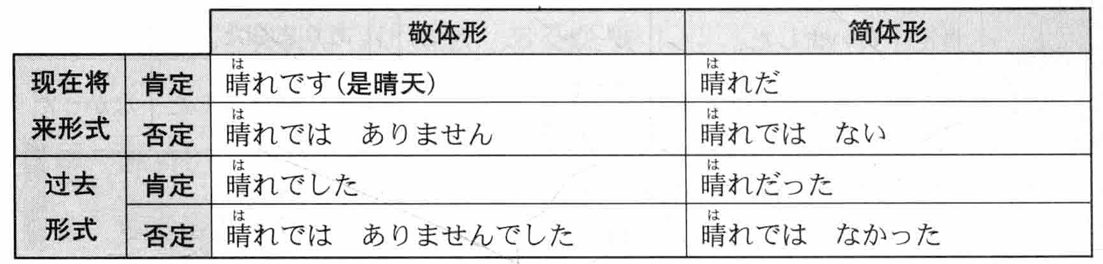 敬体形 简体形
现在将来形式 肯定 晴れです(是晴天) 晴れだ
否定 晴れでは ありません 晴れでは ない
过去形式 肯定 晴れでした 晴れだった
否定 晴れでは ありませんでした 晴れでは なかった